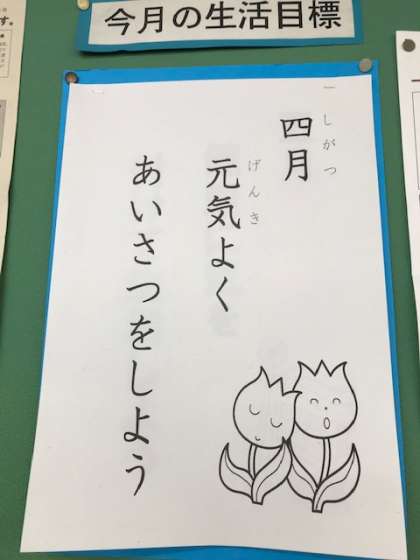 今月の生活目標
しがつ
四月
げんき
元気よく
あいさつをしよう
す。